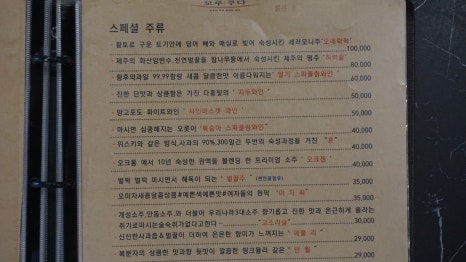 스페셜 주류
· 황토로 구운 토기안에 담아 배와 매실로 빚어 숙성시킨 세러모니주
100,000
· 제주의 화산암반수,천연벌꿀을 참나무통에서 숙성시킨 제주의 명주 "허벅술"
80,000
· 황후의과일 99.99함량 새콤 달콤한맛 아름다워지는" 딸기 스파클링와인"
60,000
· 진한 단맛과 상큼함은 가진 다홍빛의 " 자두와인"
60,000
· 망고포도 화이트와인 " 샤인머스켓 와인"
60,000
· 마시면 싱콩해지는 오묘이 "복숭아 스파클링와인"
40,000
· 위스키와 같은 방식,사과의 90%,300일간 두번의 숙성과정을 거친 "혼"
40,000
· 오크통 에서 10년 숙성한 원액을 블렌딩 한 프리미엄 소주 " 오크통"
40,000
· 벌떡 벌떡 마시면서 해독이 되는 " 벌꿀주 "
35,000
· 오미자새콤달콤상콤#예쁜색예쁜맛#여자들의 원픽 " 미 지 씨"
35,000
· 개성소주,안동소주,와 더불어 우리나라3대소주 향기롭고 진한 맛과 은근하게 올라는
취기로마시는술속취가없다고한다~ "고소리술"
35,000
· 신선한사과즙&벌꿀이 더하여 은은한 향미가 느껴지는 " 애플 리 "
29,000
· 복분자의 상큼한 맛과향 뒷맛이 깔끔한 핑크물리 같은 " 만 월 "
29,000